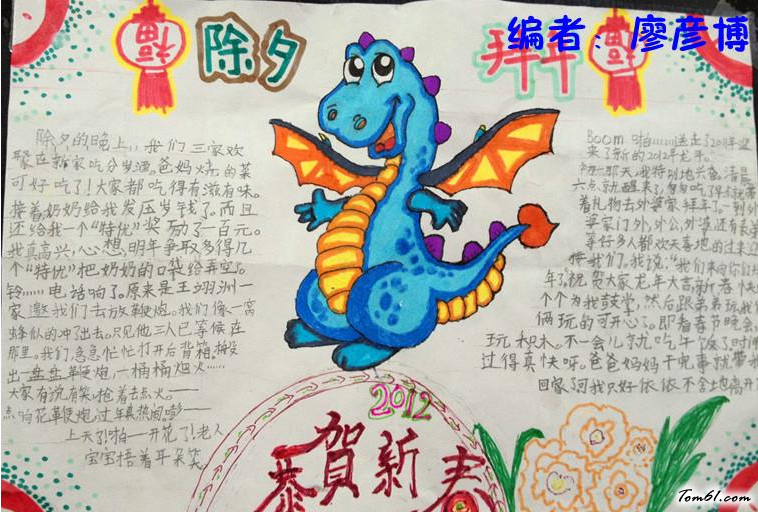 编者：廖彦博
福
除夕
拜年
福
除夕的晚上，我们三家欢
聚在新家吃分岁酒。爸妈烧的菜
可好吃了！大家都吃得有滋有味。
接着奶奶给我发压岁钱了。而且
还给我一个“特优”奖励了一百元。
我真高兴，心想，明年争取多得几
个“特优”把奶奶的口袋给弄空。
铃……电话响了。原来是王翊洲一
家邀我们去放鞭炮。我们像一窝
蜂似的冲了出去。只见他三人已等候在
那里。我们急急忙忙打开后背箱，搬
出一盘盘鞭炮，一桶桶烟火……
大家有说有笑，抢着去点火。
点响花草鞭炮，过年真热闹。嘭——
上天了！啪——开花了！老人
宝宝捂着耳朵笑。
Boom 啪……送走了2011年迎
来了新的2012年龙年。
天我特别地兴奋。清晨
六点就醒来了，匆匆吃了早点就带
着礼物去外婆家拜年了。一到外
婆家门外，外公、外婆还有表弟
等好多人都欢天喜地的过来迎
接我们。我说：“我们来向你们拜
年了，祝贺大家龙年大吉，新春快
个个为我鼓掌，然后跟弟弟玩，我们
俩玩的可开心了。即看春节晚会，
玩积木。不一会儿就吃午饭了时间
过得真快呀。爸爸妈妈干完事就带我
回家了，可我只好依依不舍地离开了
2012
恭贺新春
Tom61.com